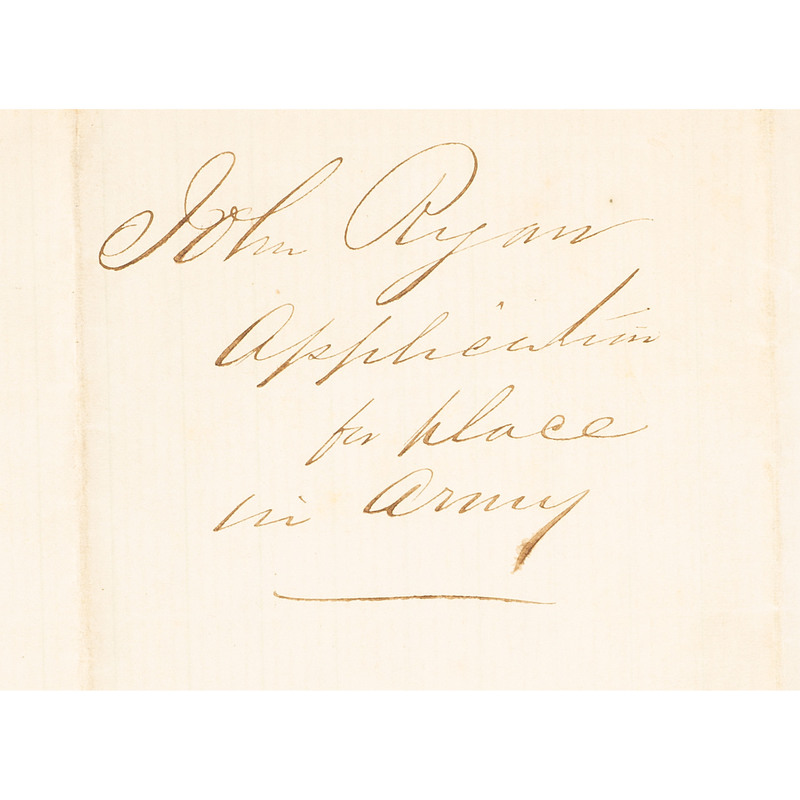 John Ryan
Application
for place
in Army